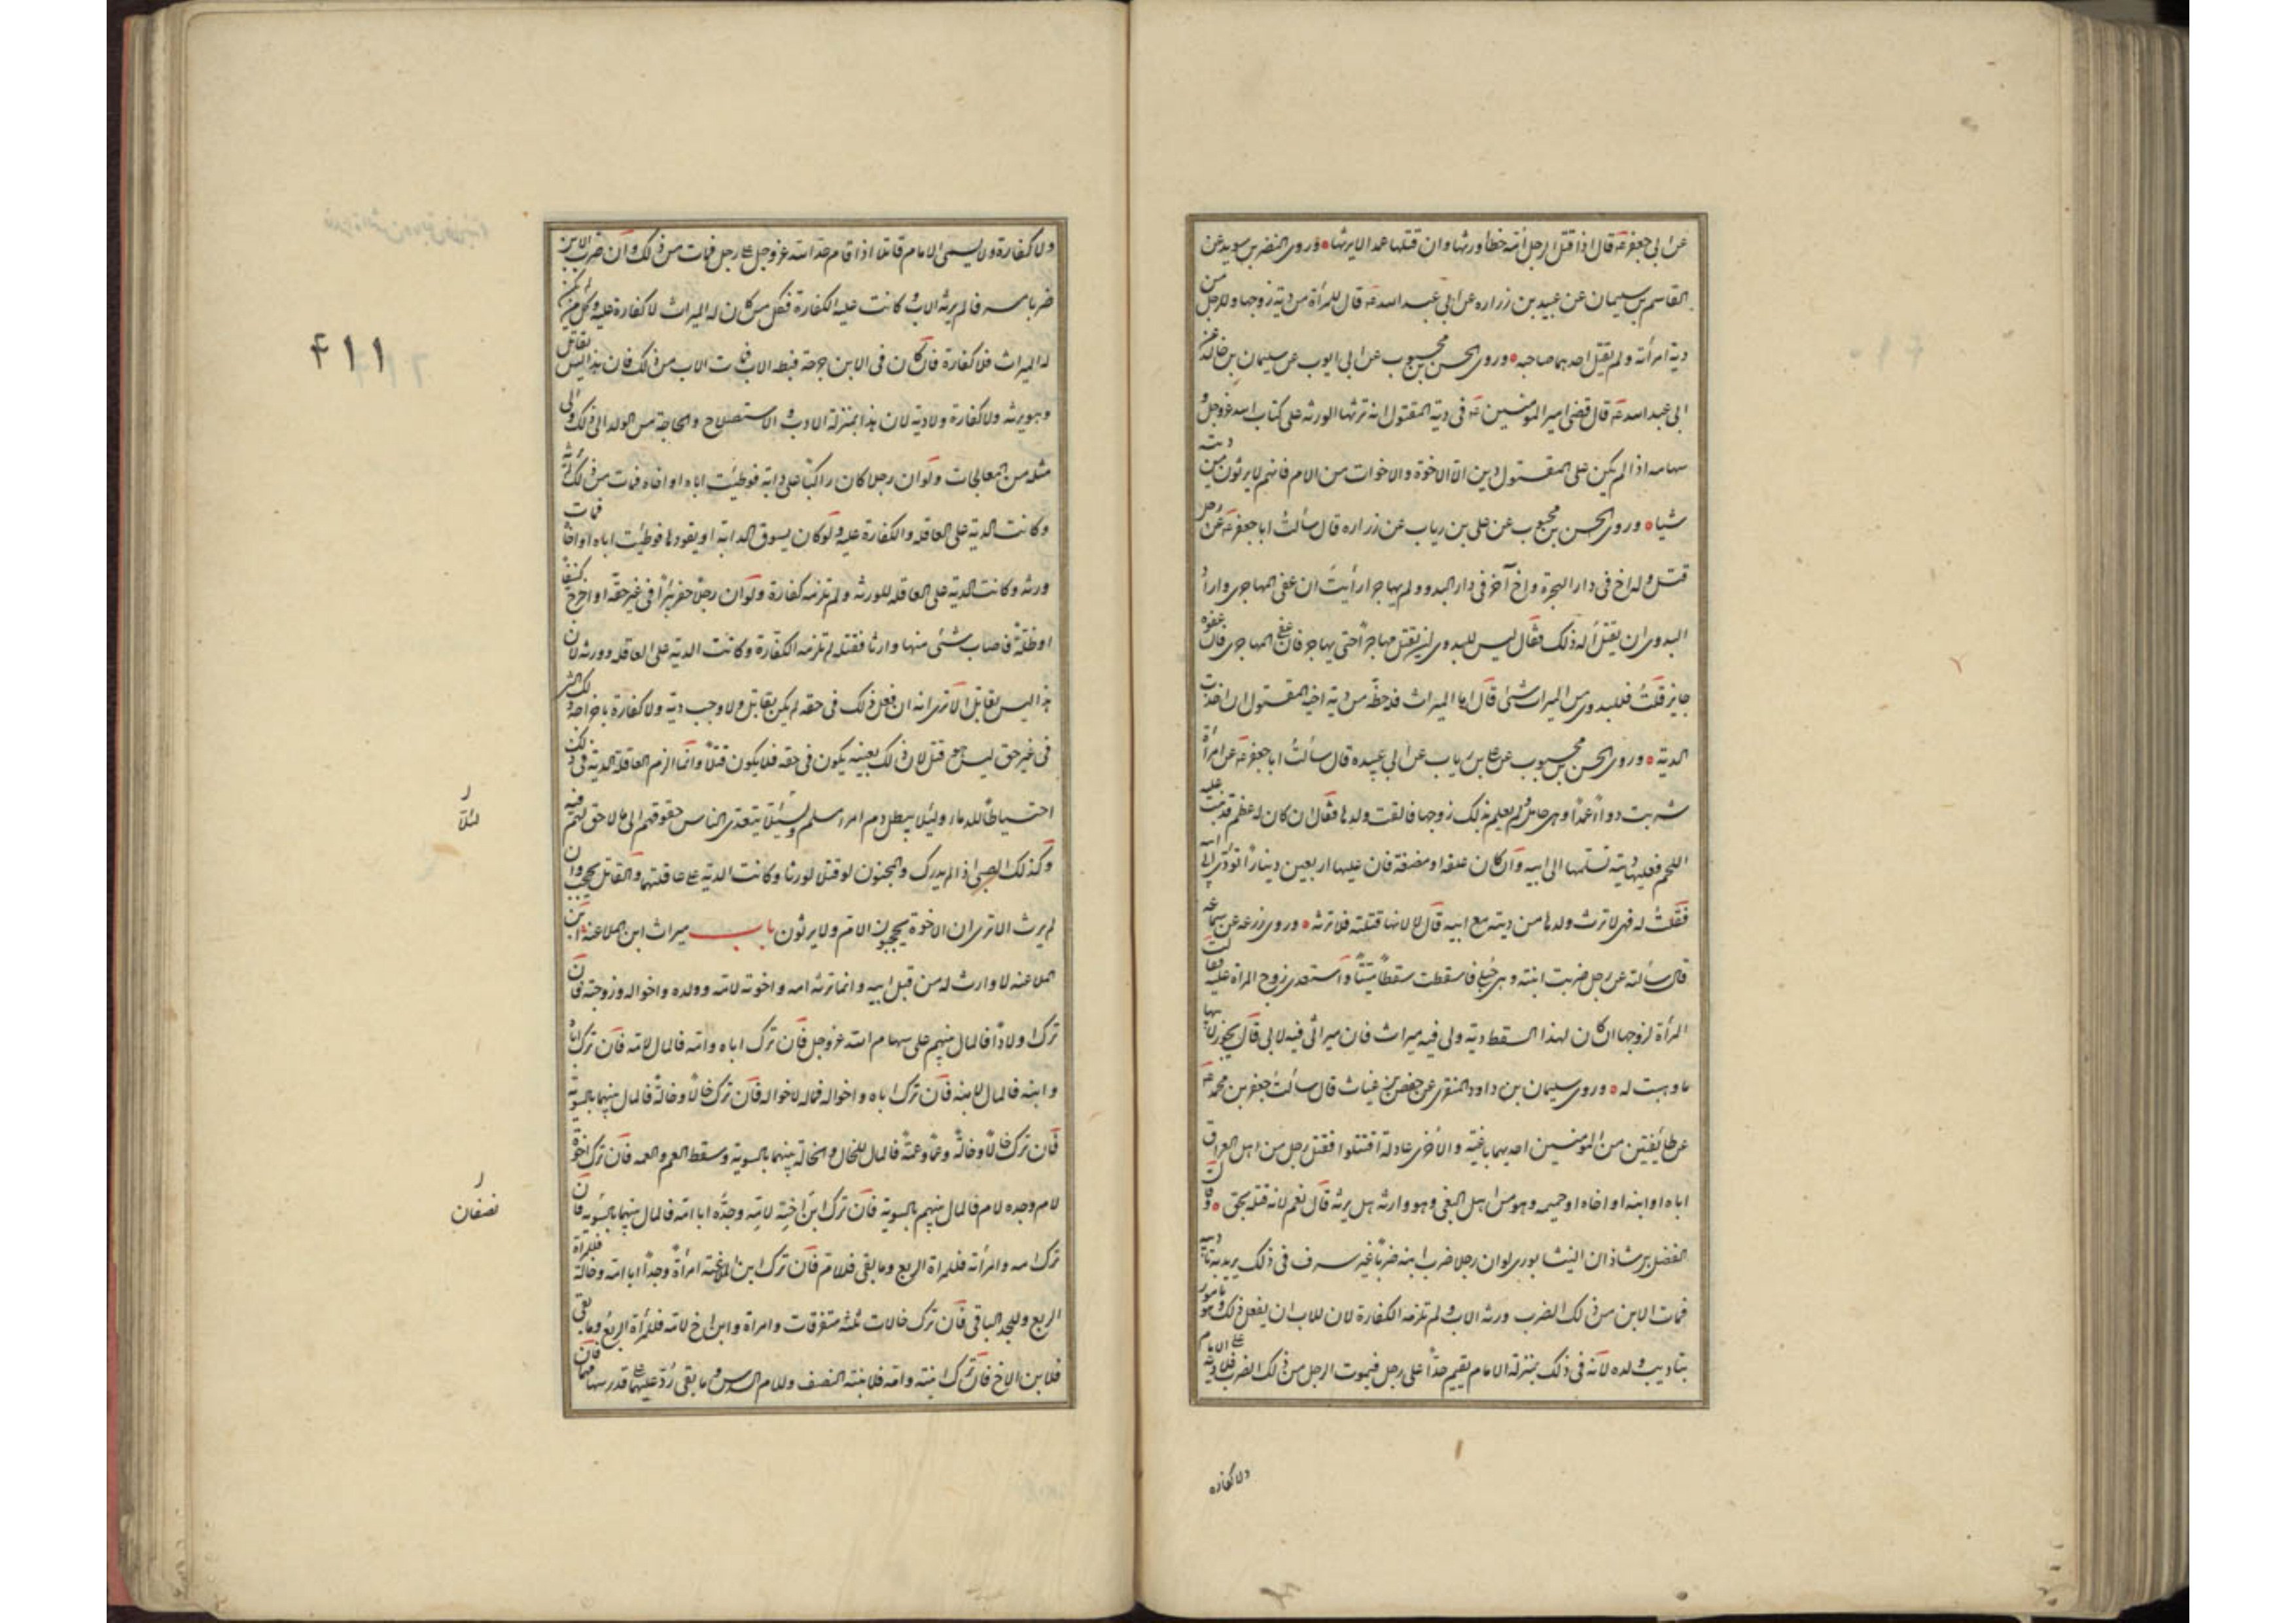 عن ابی جعفر ع قال اذا قتل الرجل امه خطا ورثها وان قتلها عمدا لا یرثها وروی النضر بن سوید عن
القاسم بن سلیمان عن عبید بن زراره عن ابی عبد الله ع قال للمرأة من دیة زوجها وللرجل من
دیة امرأته ولم یقتل احدهما صاحبه وروی الحسن بن محبوب عن ابی ایوب عن سلیمان بن خالد عن
ابی عبد الله ع قال قضی امیر المومنین ع فی دیة المقتول انه ترثها الورثه علی کتاب الله عز وجل و
سهامه اذا لم یکن علی المقتول دین الا الاخوة والاخوات من الام فانهم لا یرثون من دیته
شیا وروی الحسن بن محبوب عن علی بن ریاب عن زراره قال سألت ابا جعفر ع عن رجل
قتل وله اخ فی دار الهجرة واخ آخر فی دار البدو ولم یهاجر ارأیت ان عفی المهاجری واراد
البدوی ان یقتل أله ذلک فقال لیس للبدوی ان یقتل مهاجرا حتی یهاجر فان عفی المهاجری فان عفوه
جایز قلت فللبدوی من المیراث شئ قال اما المیراث فله حظه من دیة اخیه المقتول ان اخذت
الدیة وروی الحسن بن محبوب عن علی بن ریاب عن ابی عبیده قال سألت ابا جعفر ع عن امرأة
شربت دواء عمدا وهی حامل ولم یعلم بذلک زوجها فالقت ولدها فقال ان کان له عظم قد نبت علیه
اللحم فعلیها دیة تسلمها الی ابیه وان کان علقه او مضغة فان علیها اربعین دینارا تودی الی ابیه
فقلت له فهی لا ترث ولدها من دیته مع ابیه قال لا لانها قتلته فلا ترثه وروی زرعه عن سماعه
قال سألته عن رجل ضربت ابنته وهی حبلی فاسقطت سقطا میتا واستعدی زوج المراة علیه فقالت
المرأة لزوجها ان کان لهذا السقط دیة ولی فیه میراث فان میراثی فیه لابی قال یجوز لابیها
ما وهبت له وروی سلیمان بن داود المنقری عن حفص بن غیاث قال سألت جعفر بن محمد ع
عن طایفتین من المومنین احدیهما باغیة والاخری عادلة اقتتلوا فقتل رجل من اهل العراق
اباه او ابنه او اخاه او حمیمه وهو من اهل البغی وهو وارثه هل یرثه قال نعم لانه قتله بحق وقال
الفضل بن شاذان النیشابوری لو ان رجلا ضرب ابنه ضربا غیر مسرف فی ذلک یرید به تادیبه
فمات الابن من ذلک الضرب ورثه الاب ولم تلزمه الکفارة لان للاب ان یفعل ذلک وهو مامور
بتادیب ولده لانه فی ذلک بمنزلة الامام یقیم حدا علی رجل فیموت الرجل من ذلک الضرب فلا دیة علی الامام
ولا کفارة
ولا کفارة ولا یسمی الامام قاتلا اذا اقام حد الله عز وجل علی رجل فمات من ذلک وان ضرب الابن
ضربا مسرفا لم یرثه الاب وکانت علیه الکفارة فکل من کان له المیراث لا کفارة علیه وکل من لم یکن
له المیراث فلا کفارة فان کان فی الابن جرحة فبطه الاب فمات الاب من ذلک فان هذا لیس بقاتل
وهو یرثه ولا کفارة ولا دیة لان هذا بمنزلة الادب والاستصلاح والحاجة من الولد الی ذلک والی
مثله من المعالجات ولو ان رجلا کان راکبا علی دابة فوطئت اباه او اخاه فمات من ذلک لم یرثه
وکانت الدیة علی العاقله والکفارة علیه ولو کان یسوق الدابة او یقودها فوطئت اباه او اخاه فمات
ورثه وکانت الدیة علی العاقله للورثه ولم تلزمه کفارة ولو ان رجلا حفر بئرا فی غیر حقه او اخرج کنیفا
او ظلة فاصاب شئ منها وارثا فقتله لم تلزمه الکفارة وکانت الدیة علی العاقله وورثه لان
هذا لیس بقاتل الا تری انه ان فعل ذلک فی حقه لم یکن بقاتل ولا وجب دیة ولا کفارة باخراجه ذلک الشئ
فی غیر حق لیس هو قتل لان ذلک بعینه یکون فی حقه فلا یکون قتلا وانما الزم العاقلة الدیة فی ذلک
احتیاطا للدماء ولئلا یبطل دم امرء مسلم ولئلا یتعدی الناس حقوقهم الی ما لا حق لهم فیه
وکذلک الصبی اذا لم یدرک والمجنون لو قتلا لورثا وکانت الدیة علی عاقلتهما والقاتل یحجب وان
لم یرث الا تری ان الاخوة یحجبون الام ولا یرثون باب میراث ابن الملاعنة ابن
الملاعنه لا وارث له من قبل ابیه وانما ترثه امه واخوته لامه وولده واخواله وزوجته فان
ترک اولادا فالمال بینهم علی سهام الله عز وجل فان ترک اباه وامه فالمال لامه فان ترک اباه
وابنه فالمال لابنه فان ترک اباه واخواله فماله لاخواله فان ترک خالا وخالة فالمال بینهما بالسویة
فان ترک خالا وخالة وعما وعمة فالمال للخال والخالة بینهما بالسویة وسقط العم والعمه فان ترک اخوة
لام وجده لام فالمال بینهم بالسویة فان ترک ابن اخیه لامه وجده ابا امه فالمال بینهما بالسویة فان
ترک امه وامرأته فللمراة الربع وما بقی فللام فان ترک ابن الملاعنة امرأة وجدا ابا امه وخالة فللمرأة
الربع وللجد الباقی فان ترک خالات ثلثه متفرقات وامراة وابن اخ لامه فللمرأة الربع وما بقی
فلابن الاخ فان ترک ابنته وامه فلابنته النصف وللام السدس وما بقی رد علیهما علی قدر سهامهما فان
۴۱۱
لئلا
نصفان